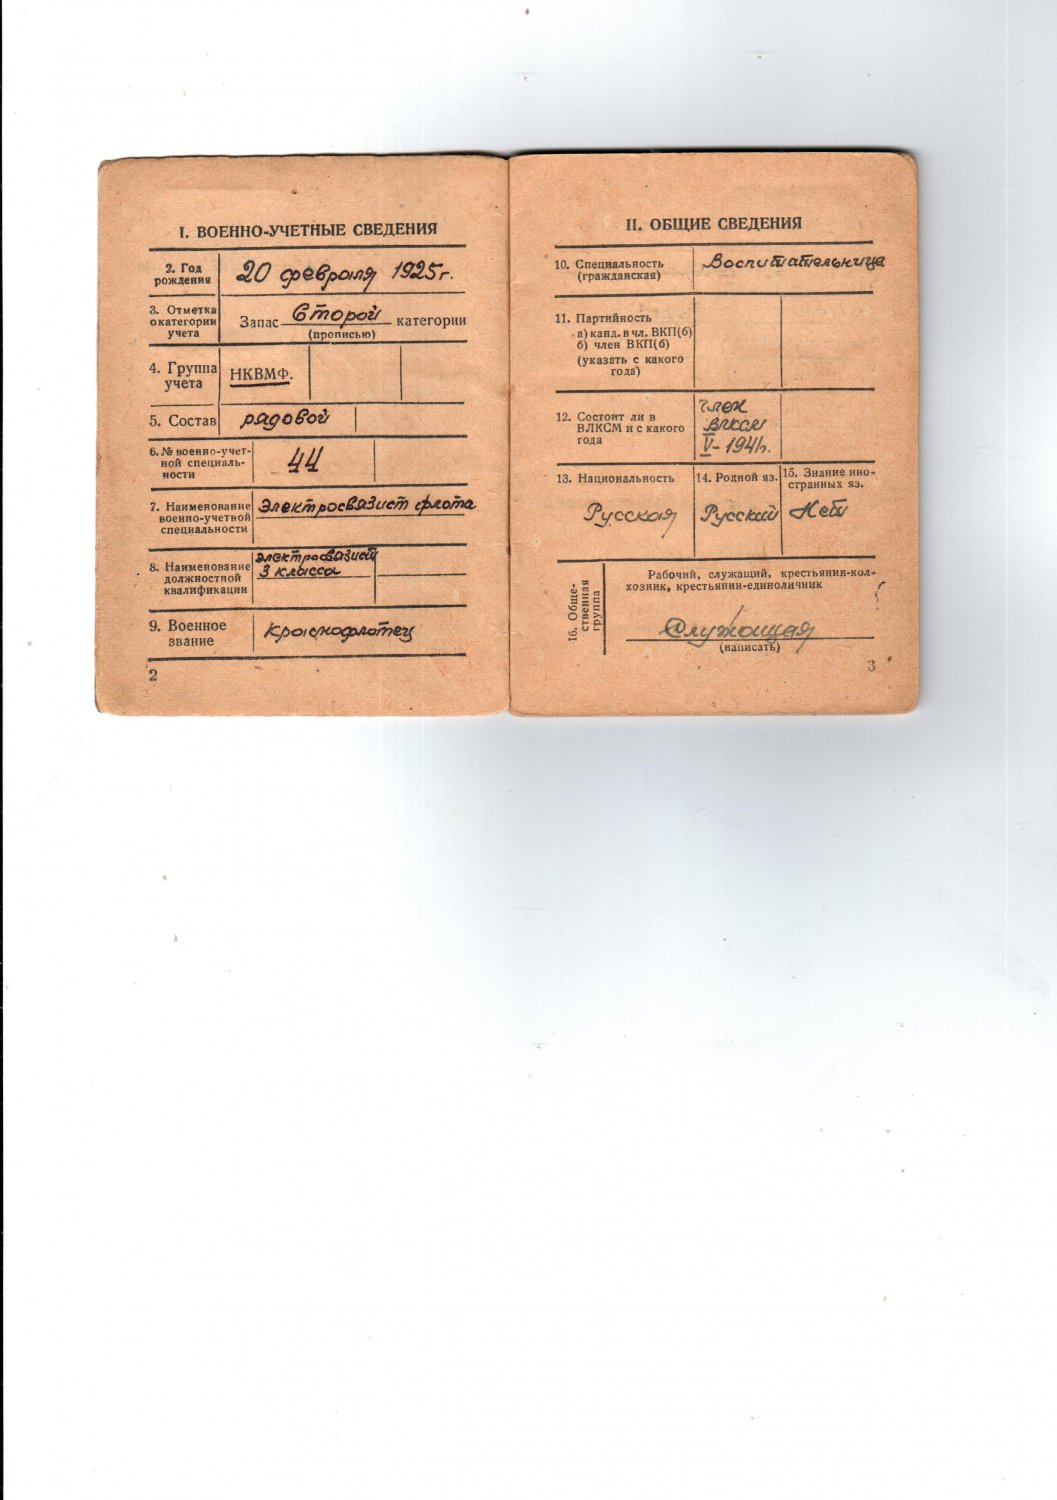 I. ВОЕННО-УЧЕТНЫЕ СВЕДЕНИЯ
2. Год
рождения
20 февраля 1925г.
3. Отметка
о категории
учета
Запас второй категории
(прописью)
4. Группа
учета
НКВМФ.
5. Состав
рядовой
6. № военно-учет-
ной специаль-
ности
44
7. Наименование
военно-учетной
специальности
Электросвязист флота
8. Наименование
должностной
квалификации
электросвязист
3 класса
9. Военное
звание
Краснофлотец
2
II. ОБЩИЕ СВЕДЕНИЯ
10. Специальность
(гражданская)
Воспитательница
11. Партийность
а) канд. в чл. ВКП(б)
б) член ВКП(б)
(указать с какого
года)
12. Состоит ли в
ВЛКСМ и с какого
года
член
ВЛКСМ
V-1941г.
13. Национальность
Русская
14. Родной яз.
Русский
15. Знание ино-
странных яз.
Нет
16. Обще-
ственная
группа
Рабочий, служащий, крестьянин-кол-
хозник, крестьянин-единоличник
Служащая
(написать)
3